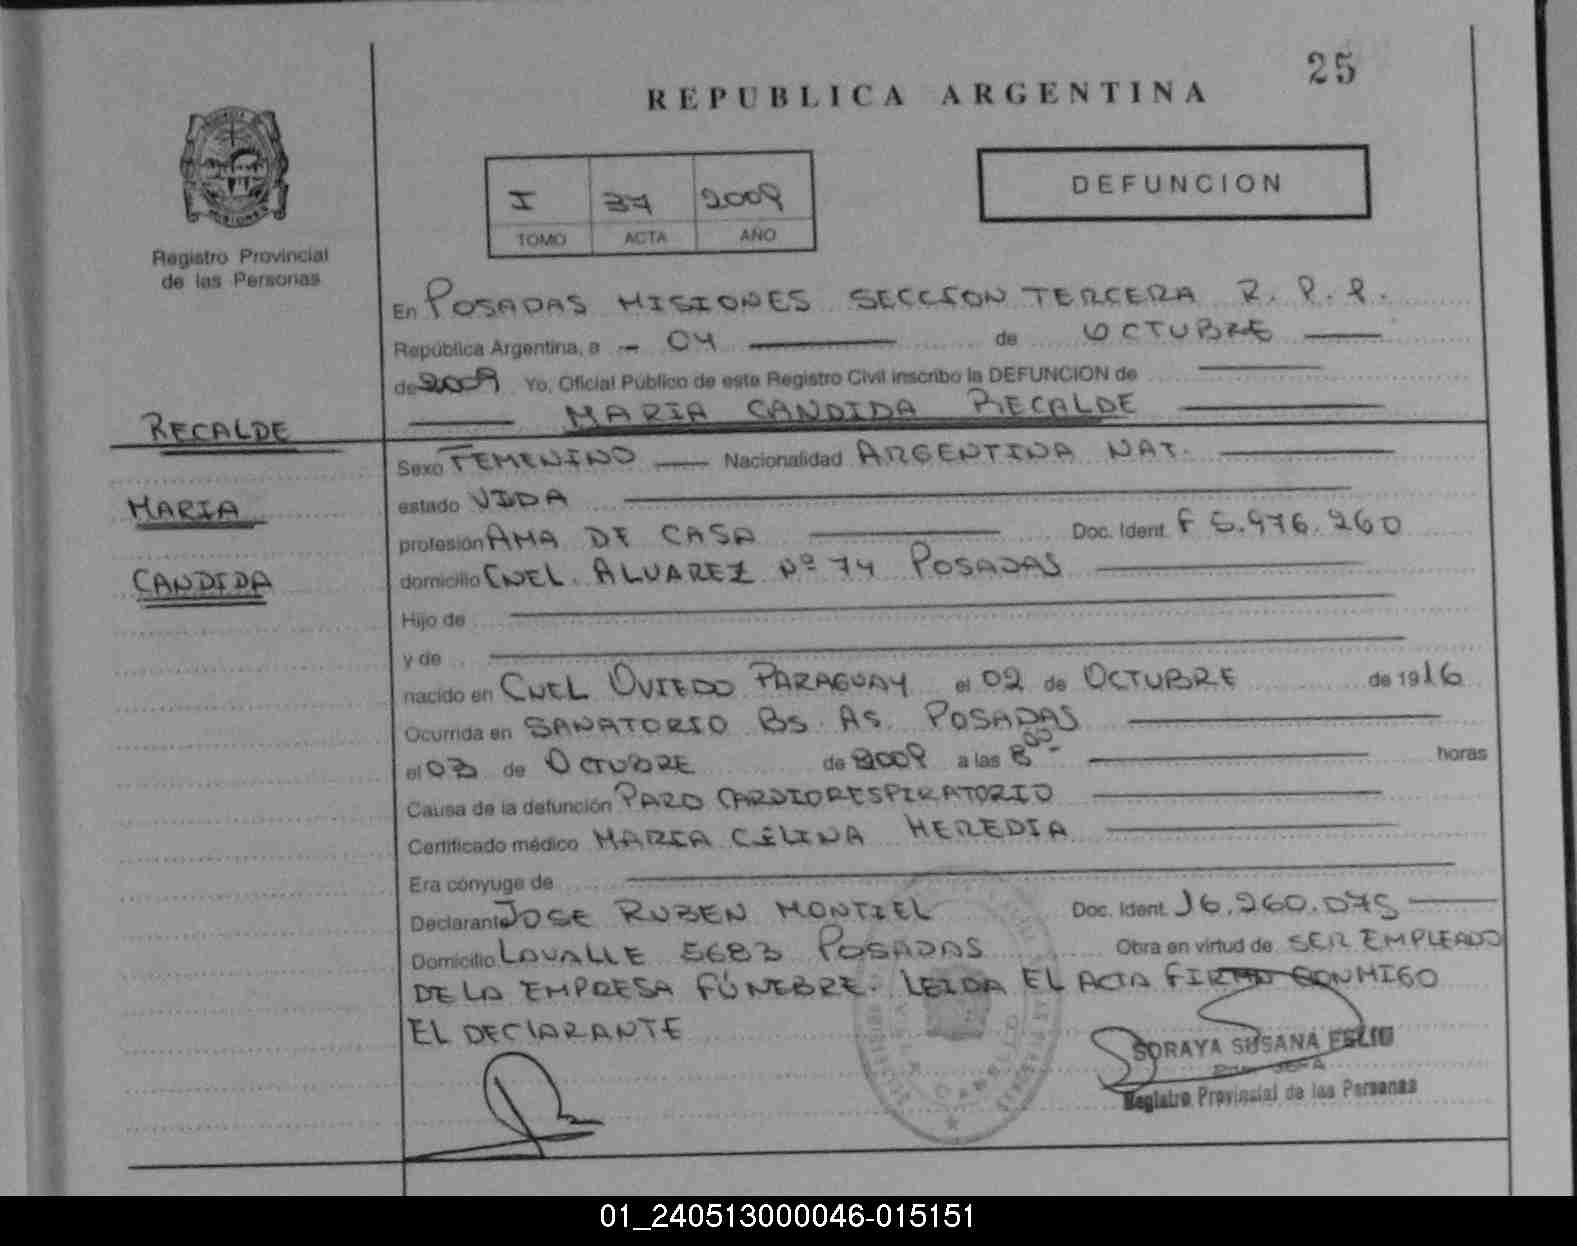 25
REPUBLICA ARGENTINA
I 37 2009
TOMO ACTA AÑO
DEFUNCION
Registro Provincial
de las Personas
En POSADAS MISIONES SECCION TERCERA R. P. P.
República Argentina, a - 04 de OCTUBRE
de 2009 Yo, Oficial Público de este Registro Civil inscribo la DEFUNCION de
MARIA CANDIDA RECALDE
RECALDE
MARIA
CANDIDA
Sexo FEMENINO Nacionalidad ARGENTINA NAT.
estado VIDA
profesión AMA DE CASA Doc. Ident. F 6.976.260
domicilio CNEL. ALVAREZ Nº 74 POSADAS
Hijo de
y de
nacido en CNEL OVIEDO PARAGUAY el 02 de OCTUBRE de 1916
Ocurrida en SANATORIO Bs. As. POSADAS
el 03 de OCTUBRE de 2009 a las 8 00 horas
Causa de la defunción PARO CARDIORESPIRATORIO
Certificado médico MARIA CELINA HEREDIA
Era cónyuge de
Declarante JOSE RUBEN MONTIEL Doc. Ident. 16.260.075
Domicilio LAVALLE 5683 POSADAS Obra en virtud de SER EMPLEADO
DE LA EMPRESA FÚNEBRE. LEIDA EL ACTA FIRMA CONMIGO
EL DECLARANTE
SORAYA SUSANA
Registro Provincial de las Personas
01_240513000046-015151